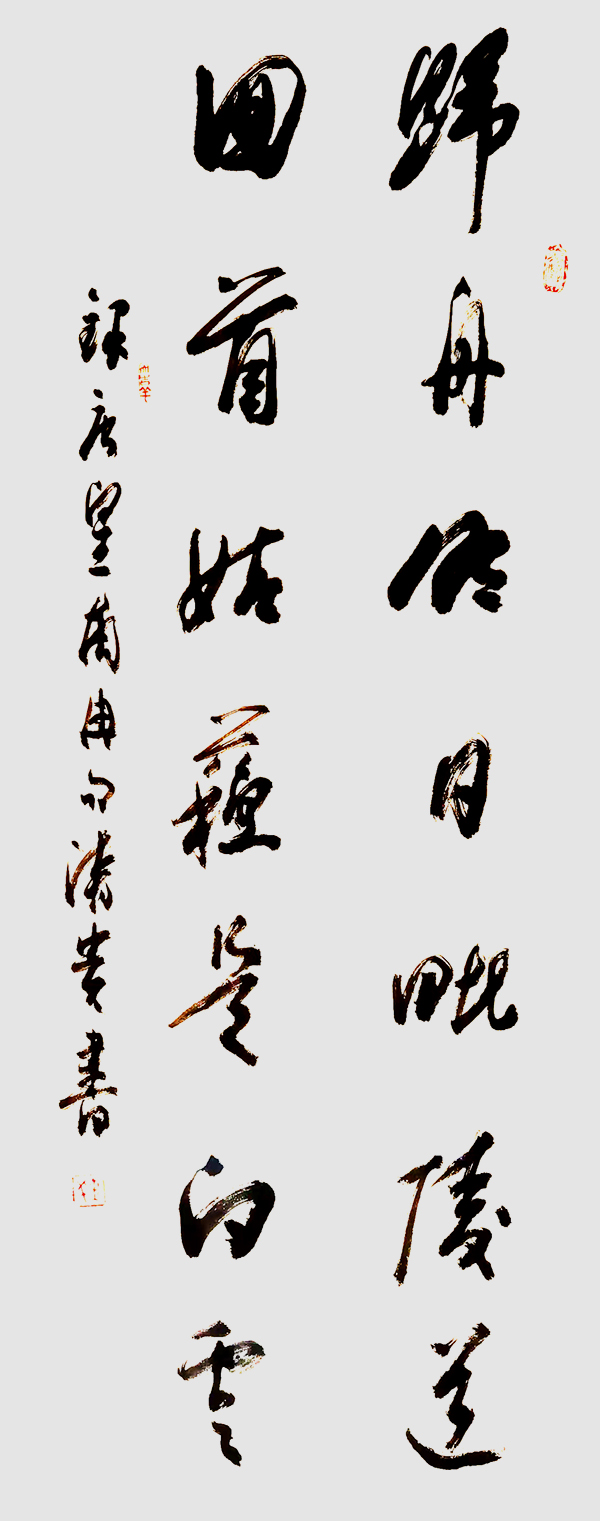 歸舟明日毗陵道
回首姑蘇是白雲
錄唐皇甫冉句貴書